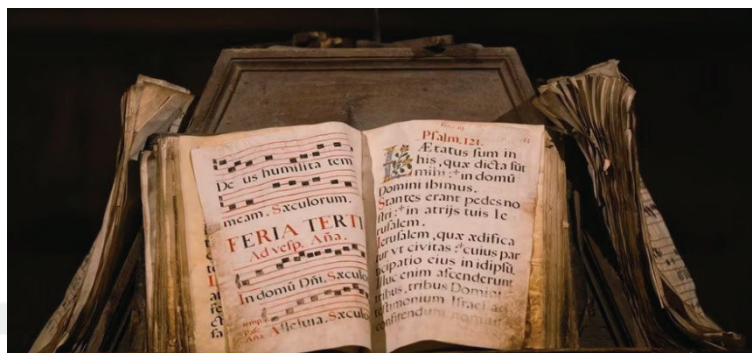 De us humilita tem
meam. Sæculorum.
FERIA TERTI
Ad vesp. Aña.
In domū Dñi. Sæculo
Alleluia. Sæculo
Psalm. 121.
LÆtatus sum in
his, quæ dicta sūt
mihi: in domū
Domini ibimus.
Stantes erant pedes no
stri: in atrijs tuis Ie
rusalem.
Ierusalem, quæ ædifica
tur vt civitas: cuius par
ticipatio eius in idipsū.
Illuc enim ascenderunt
tribus, tribus Domini
testimonium Israel ad
confitendum nomini